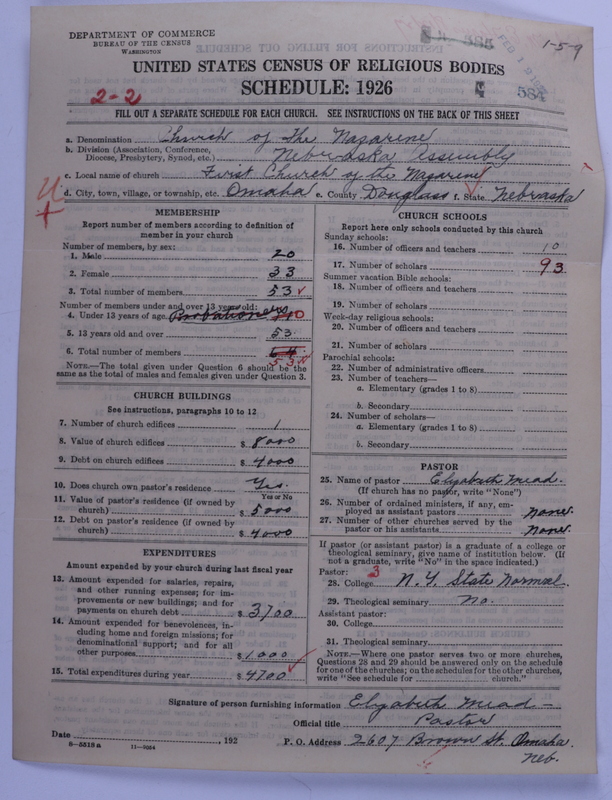 DEPARTMENT OF COMMERCE
BUREAU OF THE CENSUS
WASHINGTON
1-5-9
UNITED STATES CENSUS OF RELIGIOUS BODIES
SCHEDULE: 1926
2-2
584
FILL OUT A SEPARATE SCHEDULE FOR EACH CHURCH. SEE INSTRUCTIONS ON THE BACK OF THIS SHEET
a. Denomination Church of the Nazarene
b. Division (Association, Conference, Diocese, Presbytery, Synod, etc.) Nebraska Assembly
c. Local name of church First Church of the Nazarene
d. City, town, village, or township, etc. Omaha e. County Douglass f. State Nebraska
MEMBERSHIP
Report number of members according to definition of member in your church
Number of members, by sex:
1. Male 20
2. Female 33
3. Total number of members 53
Number of members under and over 13 years old:
4. Under 13 years of age Probationers 0
5. 13 years old and over 53
6. Total number of members 53
NOTE.—The total given under Question 6 should be the same as the total of males and females given under Question 3.
CHURCH BUILDINGS
See instructions, paragraphs 10 to 12
7. Number of church edifices 1
8. Value of church edifices $ 8000
9. Debt on church edifices $ 4000
10. Does church own pastor's residence Yes.
Yes or No
11. Value of pastor's residence (if owned by church) $ 5000
12. Debt on pastor's residence (if owned by church) $ 4000
EXPENDITURES
Amount expended by your church during last fiscal year
13. Amount expended for salaries, repairs, and other running expenses; for improvements or new buildings; and for payments on church debt $ 3700
14. Amount expended for benevolences, including home and foreign missions; for denominational support; and for all other purposes $ 1000
15. Total expenditures during year $ 4700
CHURCH SCHOOLS
Report here only schools conducted by this church
Sunday schools:
16. Number of officers and teachers 10
17. Number of scholars 93
Summer vacation Bible schools:
18. Number of officers and teachers
19. Number of scholars
Week-day religious schools:
20. Number of officers and teachers
21. Number of scholars
Parochial schools:
22. Number of administrative officers
23. Number of teachers—
a. Elementary (grades 1 to 8)
b. Secondary
24. Number of scholars—
a. Elementary (grades 1 to 8)
b. Secondary
PASTOR
25. Name of pastor Elizabeth Mead.
(If church has no pastor, write "None")
26. Number of ordained ministers, if any, employed as assistant pastors None.
27. Number of other churches served by the pastor or his assistants None.
If pastor (or assistant pastor) is a graduate of a college or theological seminary, give name of institution below. (If not a graduate, write "No" in the space indicated.)
Pastor: 3
28. College N. Y. State Normal.
29. Theological seminary No.
Assistant pastor:
30. College
31. Theological seminary
NOTE.—Where one pastor serves two or more churches, Questions 28 and 29 should be answered only on the schedule for one of the churches; on the schedules for the other churches, write "See schedule for church."
Signature of person furnishing information Elizabeth Mead —
Official title Pastor
Date , 192
P. O. Address 2607 Brown St. Omaha.
Neb.
8—5518 a 11—5054